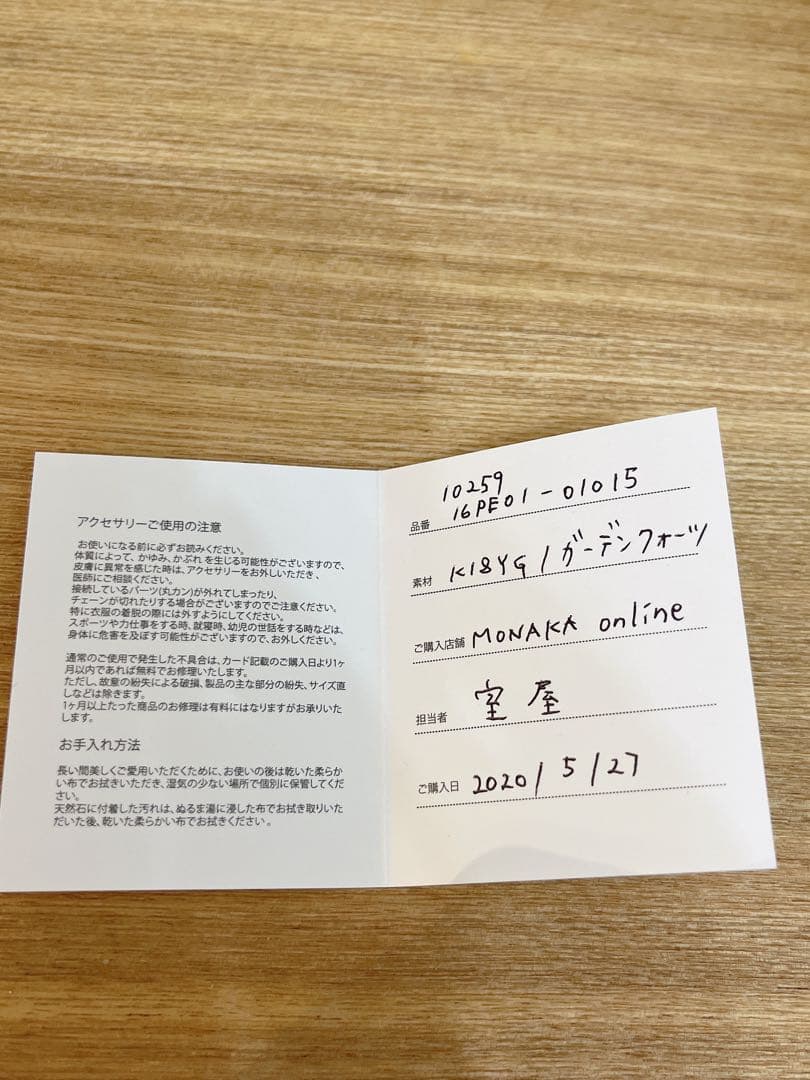 アクセサリーご使用の注意
お使いになる前に必ずお読みください。
体質によって、かゆみ、かぶれ を生じる可能性がございますので、
皮膚に異常を感じた時は、アクセサリーをお外しいただき 、
医師にご相談ください。
接続しているパーツ(丸カン)が外れてしまったり、
チェーンが切れたりする場合がございますのでご注意ください。
特に衣服の着脱の際には外すようにしてください。
スポーツや力仕事をする時、就寝時、幼児の世話をする時などは、
身体に危害を及ぼす可能性がございますので、お外しください。
通常のご使用で発生した不具合は、カード記載のご購入日より1ヶ
月以内であれば無料でお修理いたします。
ただし、故意の紛失による破損、製品の主な部分の紛失、サイズ直
しなどは除きます。
1ヶ月以上たった商品のお修理は有料にはなりますがお承りいた
します。
お手入れ方法
長い間美しくご愛用いただくために、お使いの後は乾いた柔らか
い布でお拭きいただき、湿気の少ない場所で個別に保管してくだ
さい。
天然石に付着した汚れは、ぬるま湯に浸した布でお拭き取りいた
だいた後、乾いた柔らかい布でお拭きください 。
10259
品番 16PE01-01015
素材 K18YG/ガーデンクォーツ
ご購入店舗 MONAKA online
担当者 室屋
ご購入日 2020/5/27